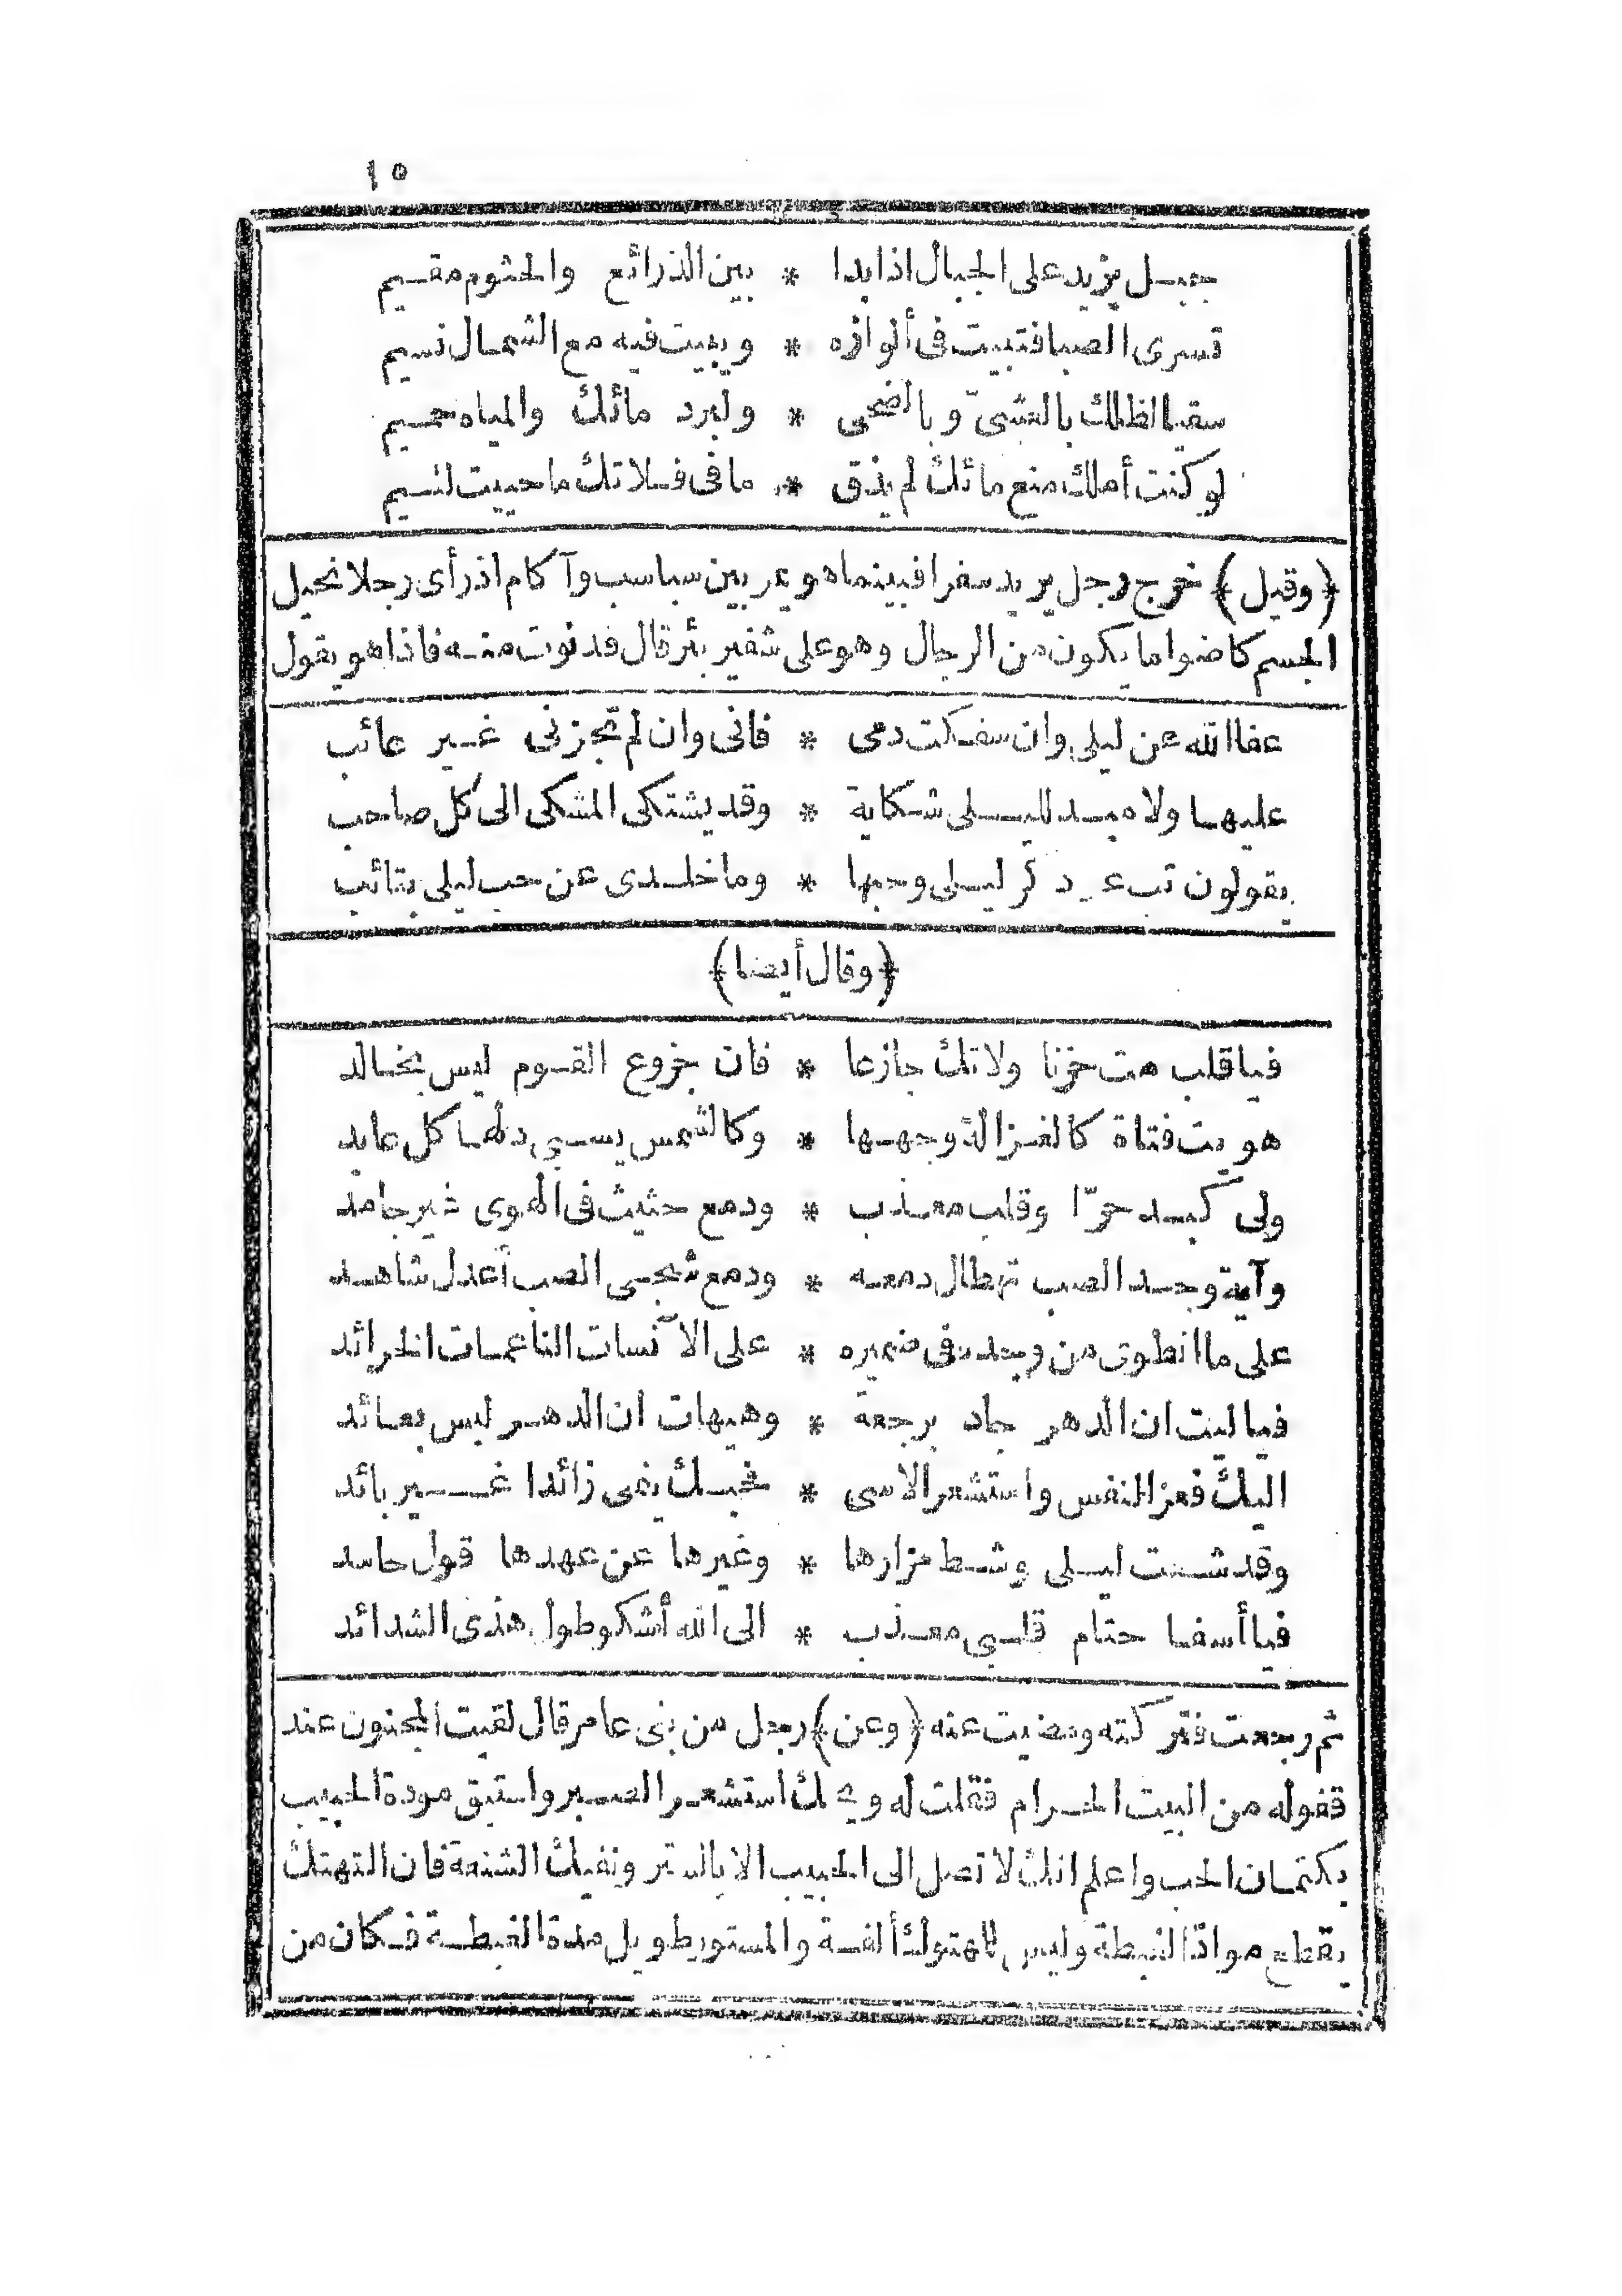 ١٥
جبل يزيد على الجبال اذا بدا * بين الذرائع والجثوم مقيم
تسرى الصبا فتبيت فى ألواذه * ويبيت فيه مع الشمال نسيم
سقيا لظلك بالعشىّ وبالضحى * ولبرد مائك والمياه حميم
لو كنت أملك منع مائك لم يذق * ما فى فلاتك ما حييت لئيم
(وقيل) خرج رجل يريد سفرا فبينما هو يمر بين سباسب وآكام اذ رأى رجلا نحيل
الجسم كاضوا ما يكون من الرجال وهو على شفير بئر قال فدنوت منه فاذا هو يقول
عفا الله عن ليلى وان سفكت دمى * فانى وان لم تجزنى غير عائب
عليها ولا مبد لليلى شكاية * وقد يشتكى المشكى الى كل صاحب
يقولون تب عن ذكر ليلى وحبها * وما خلدى عن حب ليلى بتائب
(وقال أيضا)
فيا قلب مت حزنا ولا تك جازعا * فان جزوع القوم ليس بخالد
هويت فتاة كالغزالة وجهها * وكالشمس يسبى دلها كل عابد
ولى كبد حرّا وقلب معذب * ودمع حثيث فى الهوى غير جامد
وآية وجد الصب تهطال دمعه * ودمع شجى الصب أعدل شاهد
على ما انطوى من وجده فى ضميره * على الآنسات الناعمات الخرائد
فيا ليت ان الدهر جاد برجعة * وهيهات ان الدهر ليس بعائد
اليك فعز النفس واستشعر الاسى * فحبك ينمى زائدا غير بائد
وقد شت ليلى وشط مزارها * وغيرها عن عهدها قول حاسد
فيا أسفا حتام قلبى معذب * الى الله أشكو طول هذى الشدائد
ثم رجعت فتركته ومضيت عنه (وعن) رجل من بنى عامر قال لقيت المجنون عند
قفوله من البيت الحرام فقلت له ويحك استشعر الصبر واستبق مودة الحبيب
بكتمان الحب واعلم انك لا تصل الى الحبيب الا بالستر ونفيك الشنعة فان التهتك
يقطع موادّ الغبطة وليس للمهتوك ألفة والمستور طويل مدة الغبطة فكان من